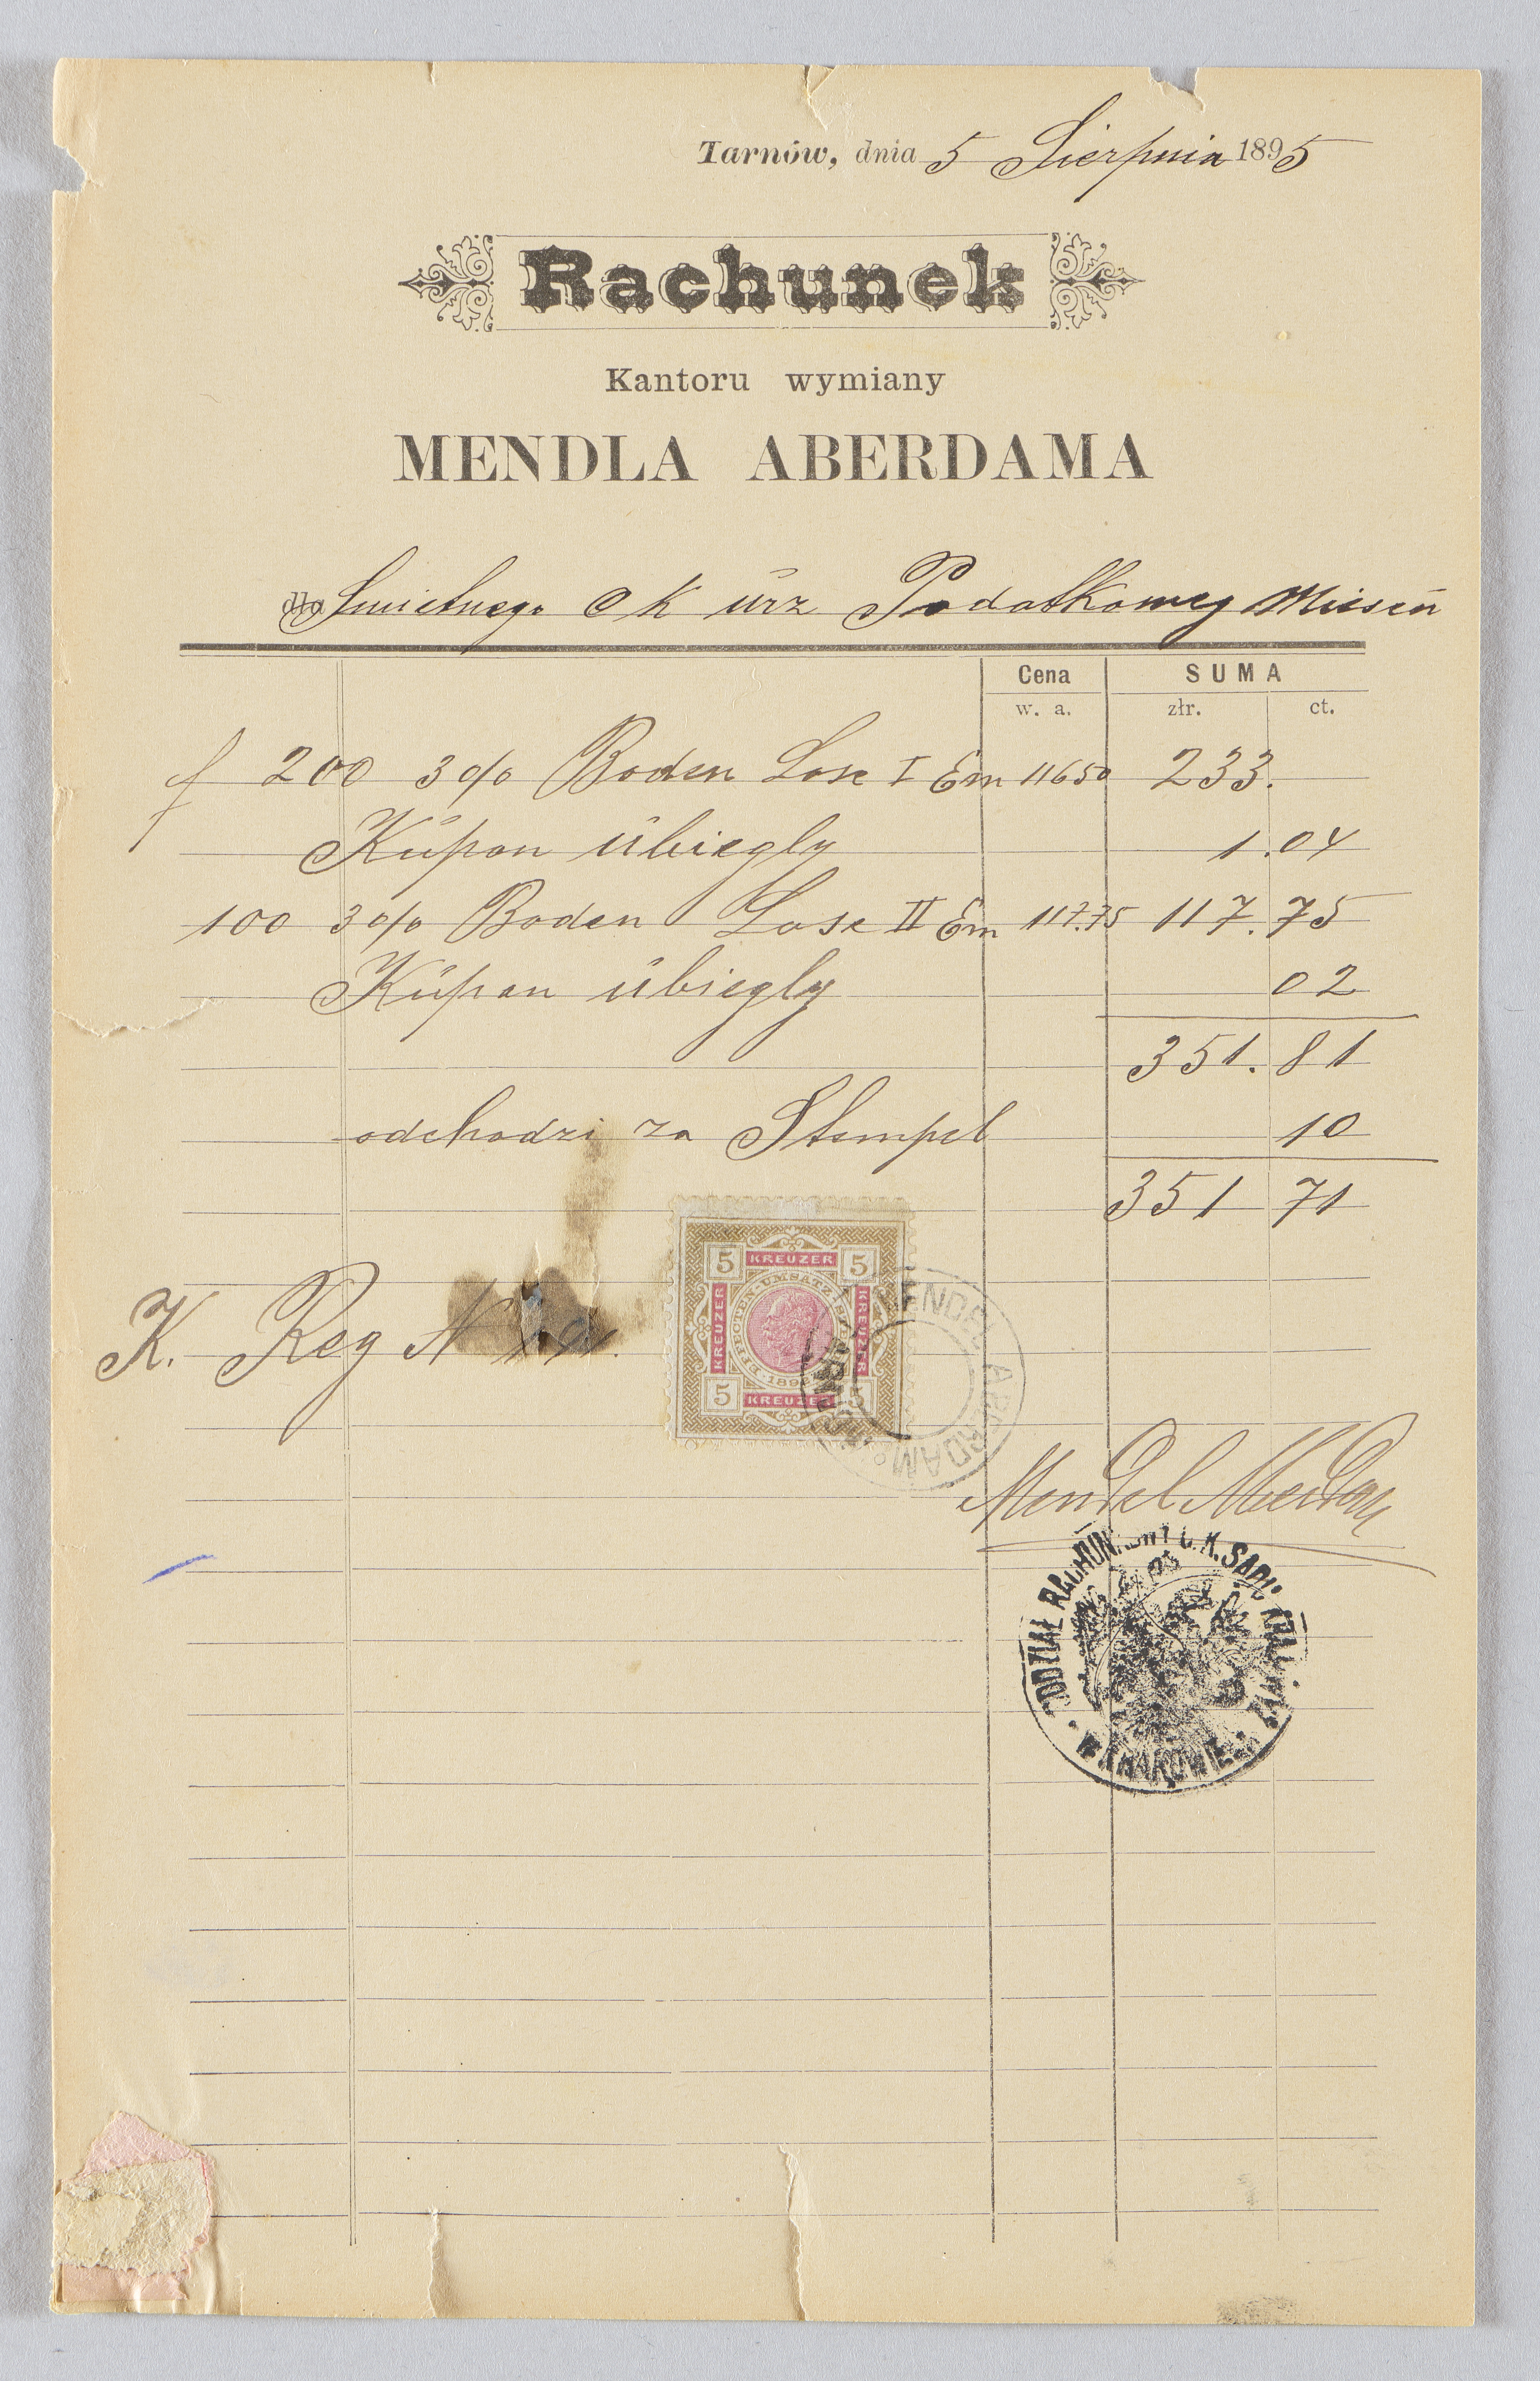 Tarnów, dnia 5 Sierpnia 1895
Rachunek
Kantoru wymiany
MENDLA ABERDAMA
dla Swietnego C K ürz Podatkoweg
Cena SUMA
w. a. złr. ct.
f 200 3% Boden Lose I Em 11650 233.
Küpon übiegly 1.04
100 3% Boden Lose II Em 117.75 117.75
Küpon übiegly 02
351.81
odchodzi za Stempel 10
351 71
5 KREUZER 5
KREUZER EFFECTEN-UMSATZ-STEUER KREUZER
1892
5 KREUZER 5
MENDEL ABERDAM
K. Reg N
Mendel Aberdam
ODDZIAŁ RACHUN. C. K. SĄDU KRAJ.
W KRAKOWIE